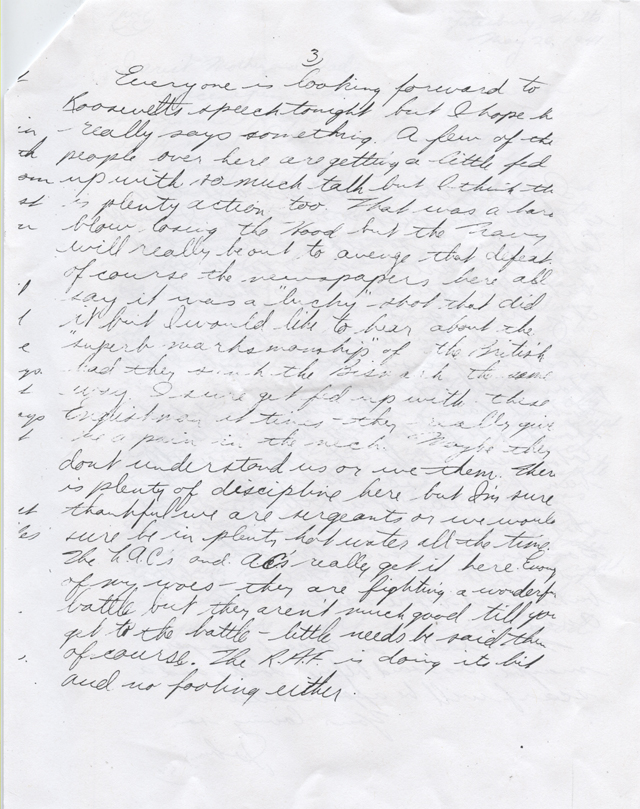 3
Everyone is looking forward to
Roosevelts speech tonight but I hope h
really says something. A few of the
people over here are getting a little fed
up with so much talk but I think th
is plenty action too. That was a har
blow, losing the Hood but the navy
will really be out to avenge that defeat
of course the newspapers here all
say it was a "lucky" shot that did
it but I would like to hear about the
"superb marksmanship" of the British
had they sunk the Bismark the same
way. I sure get fed up with these
at times - they really give
me a pain in the neck. Maybe they
dont understand us or we them. Ther
is plenty of discipline here but I'm sure
thankful we are sergeants or we would
sure be in plenty hot water all the time.
The L.A.C's and AC's really get it here.
of my woes - they are fighting a wonderf
battle but they aren't much good till you
get to the battle - little needs be said then
of course. The R.A.F. is doing its bit
and no fooling either.